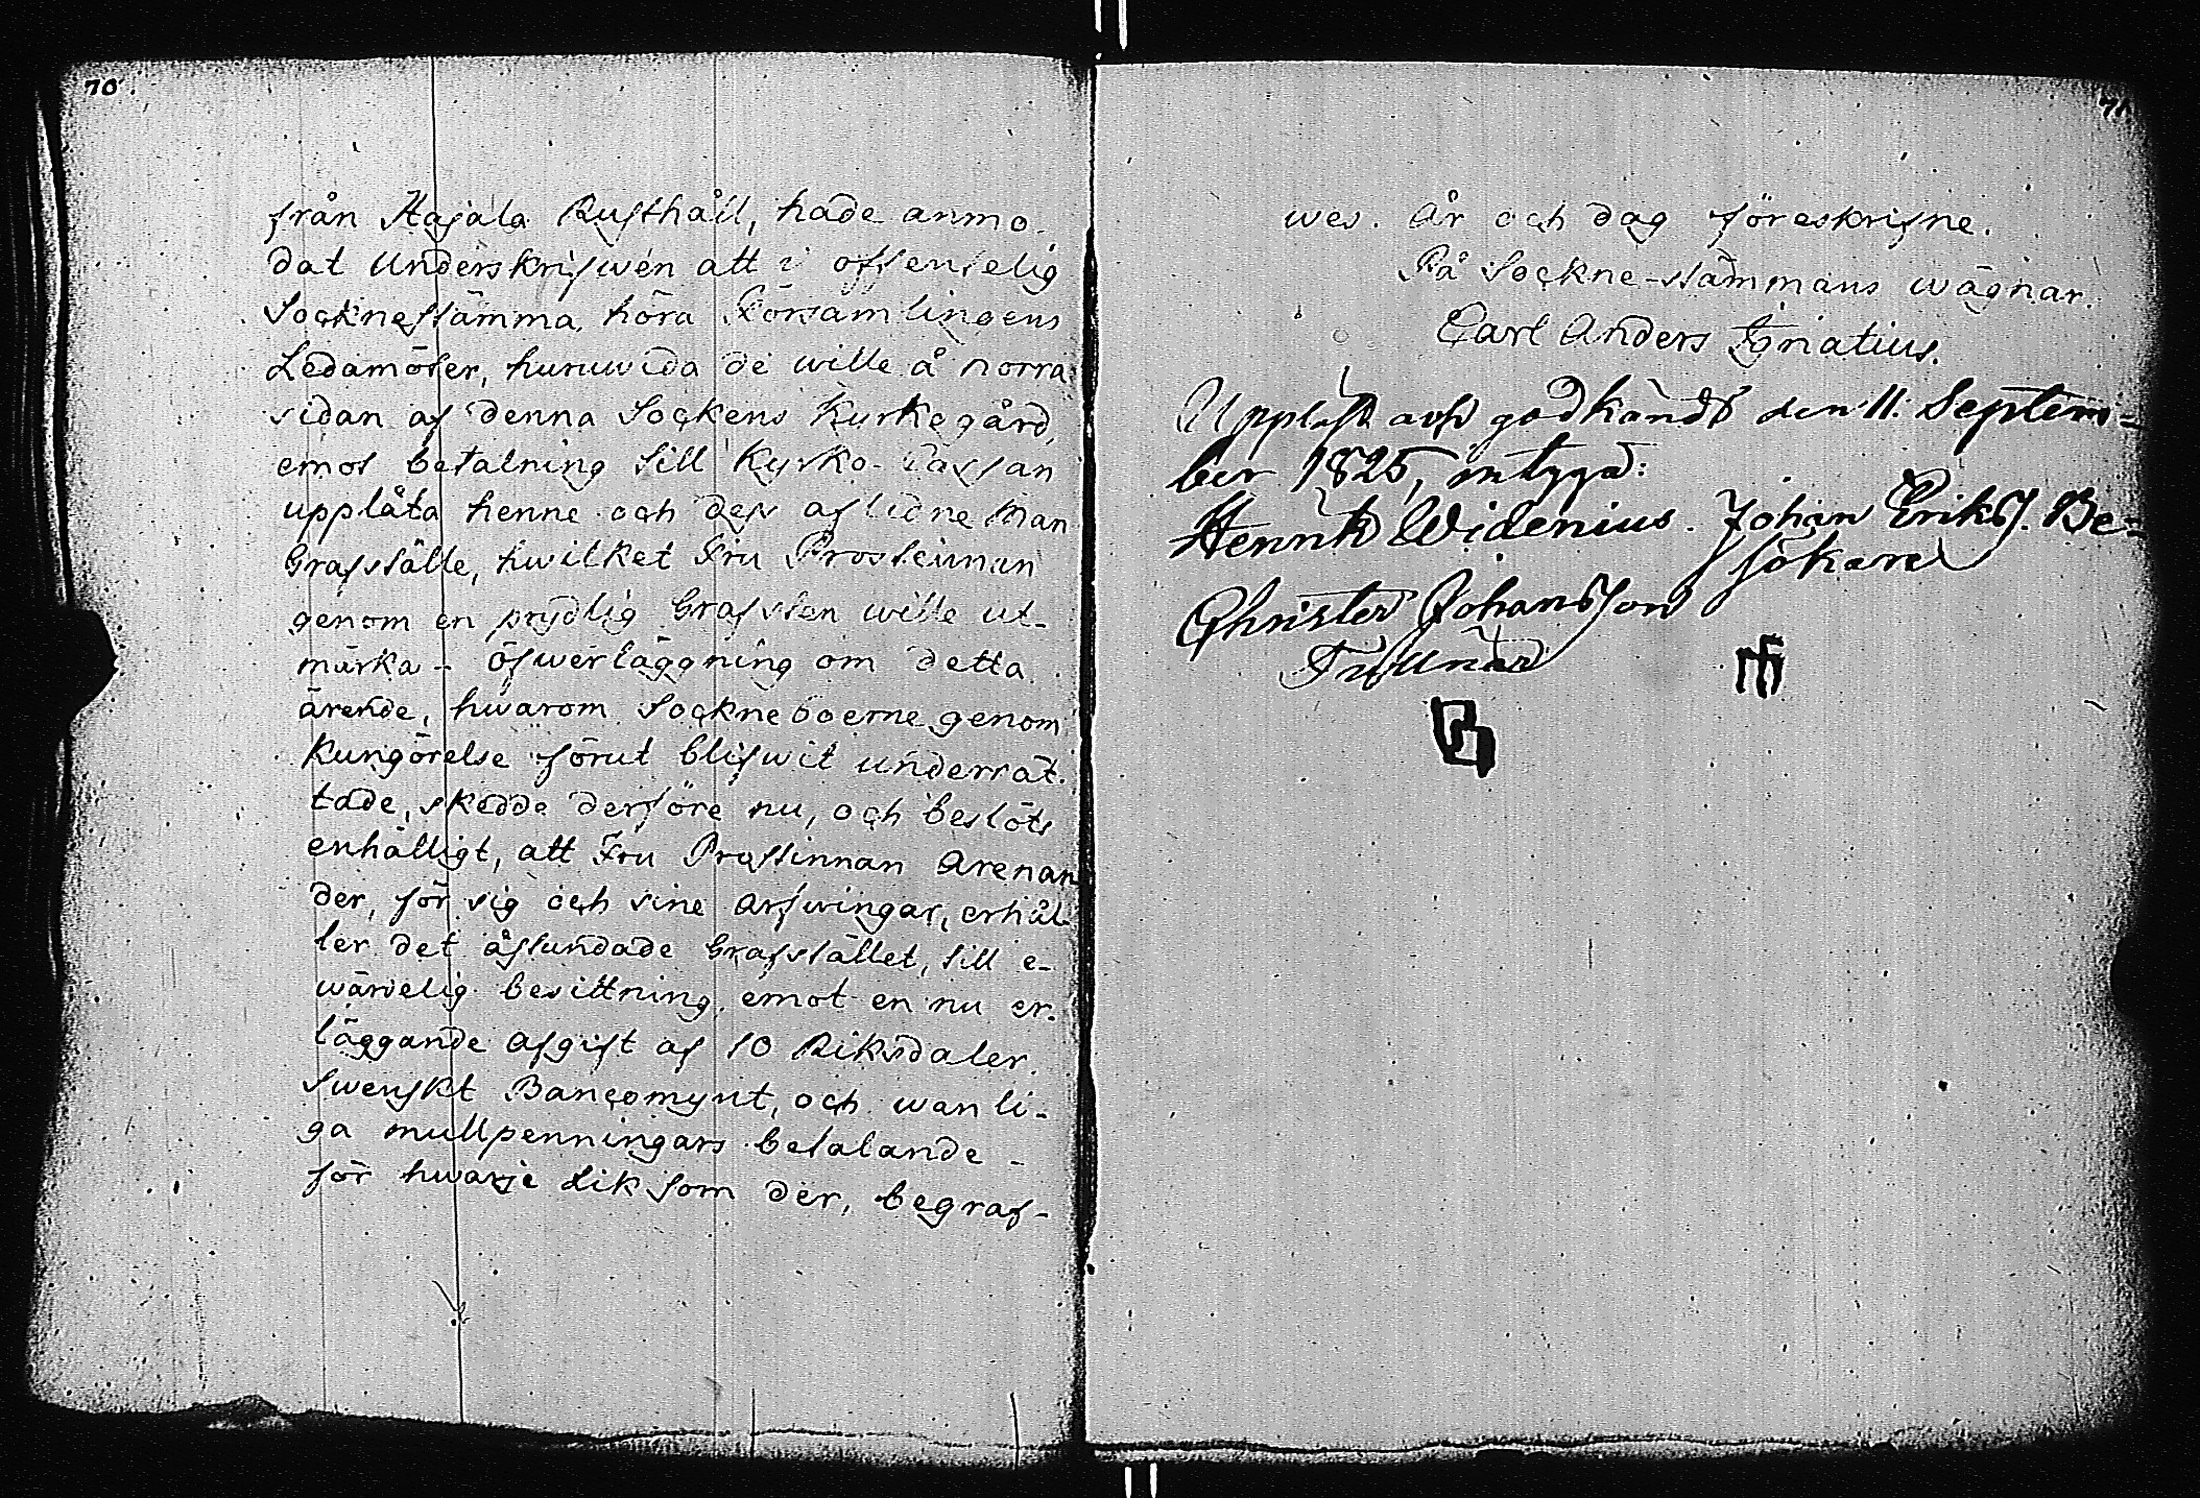 70.
från Hajala Rusthåll, hade anmo-
dat Underskrifwen att i offentelig
Socknestämma, höra Församlingens
Ledamöter, huruwida de wille å norra
sidan af denna Sockens Kyrkogård,
emot betalning till Kyrko-Cassan
upplåta henne och dess aflidne Man
Grafställe, hwilket Fru Prostinnan
genom en prydlig Grafsten wille ut-
märka - Öfwerläggning om detta
ärende, hwarom Sockneboerne genom
Kungörelse förut blifwit underrät-
tade, skedde derföre nu, och beslöts
enhälligt, att Fru Prostinnan Arenan
der, för sig och sine arfwingar, erhål-
ler det åstundade Grafstället, till e-
wärdelig besittning, emot en nu er-
läggande afgift af 10 Riksdaler
Swenskt Bancomynt, och wanli-
ga mullpenningars betalande -
för hwarje Lik som der, begraf-
71
wes. År och dag föreskrifne.
På Sockne-stämmans wägnar.
Carl Anders Ignatius.
Uppläst och godkändt den 11. Septem-
ber 1825, intyga:
Henrik Widenius. Johan Eriks. Be-
sökare
Christer Johansson